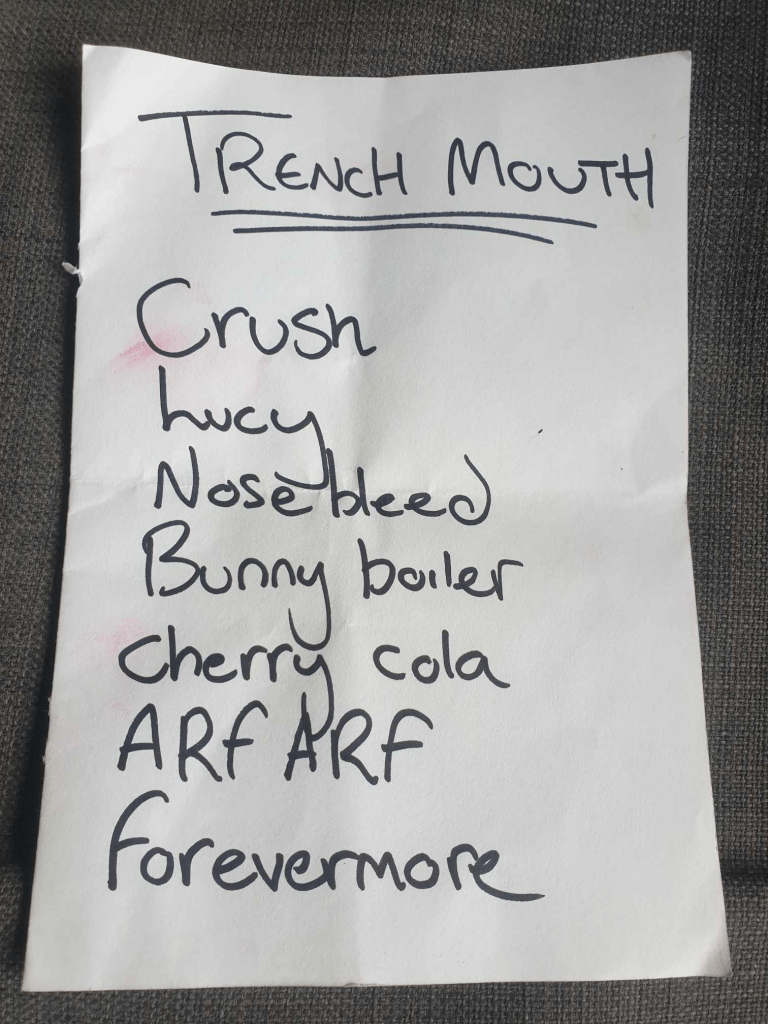 TRENCH MOUTH
Crush
Lucy
Nosebleed
Bunny boiler
Cherry cola
ARF ARF
Forevermore